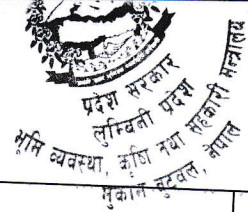 प्रदेश सरकार
लुम्बिनी प्रदेश
भूमि व्यवस्था, कृषि तथा सहकारी मन्त्रालय
मुकाम बुटवल, नेपाल